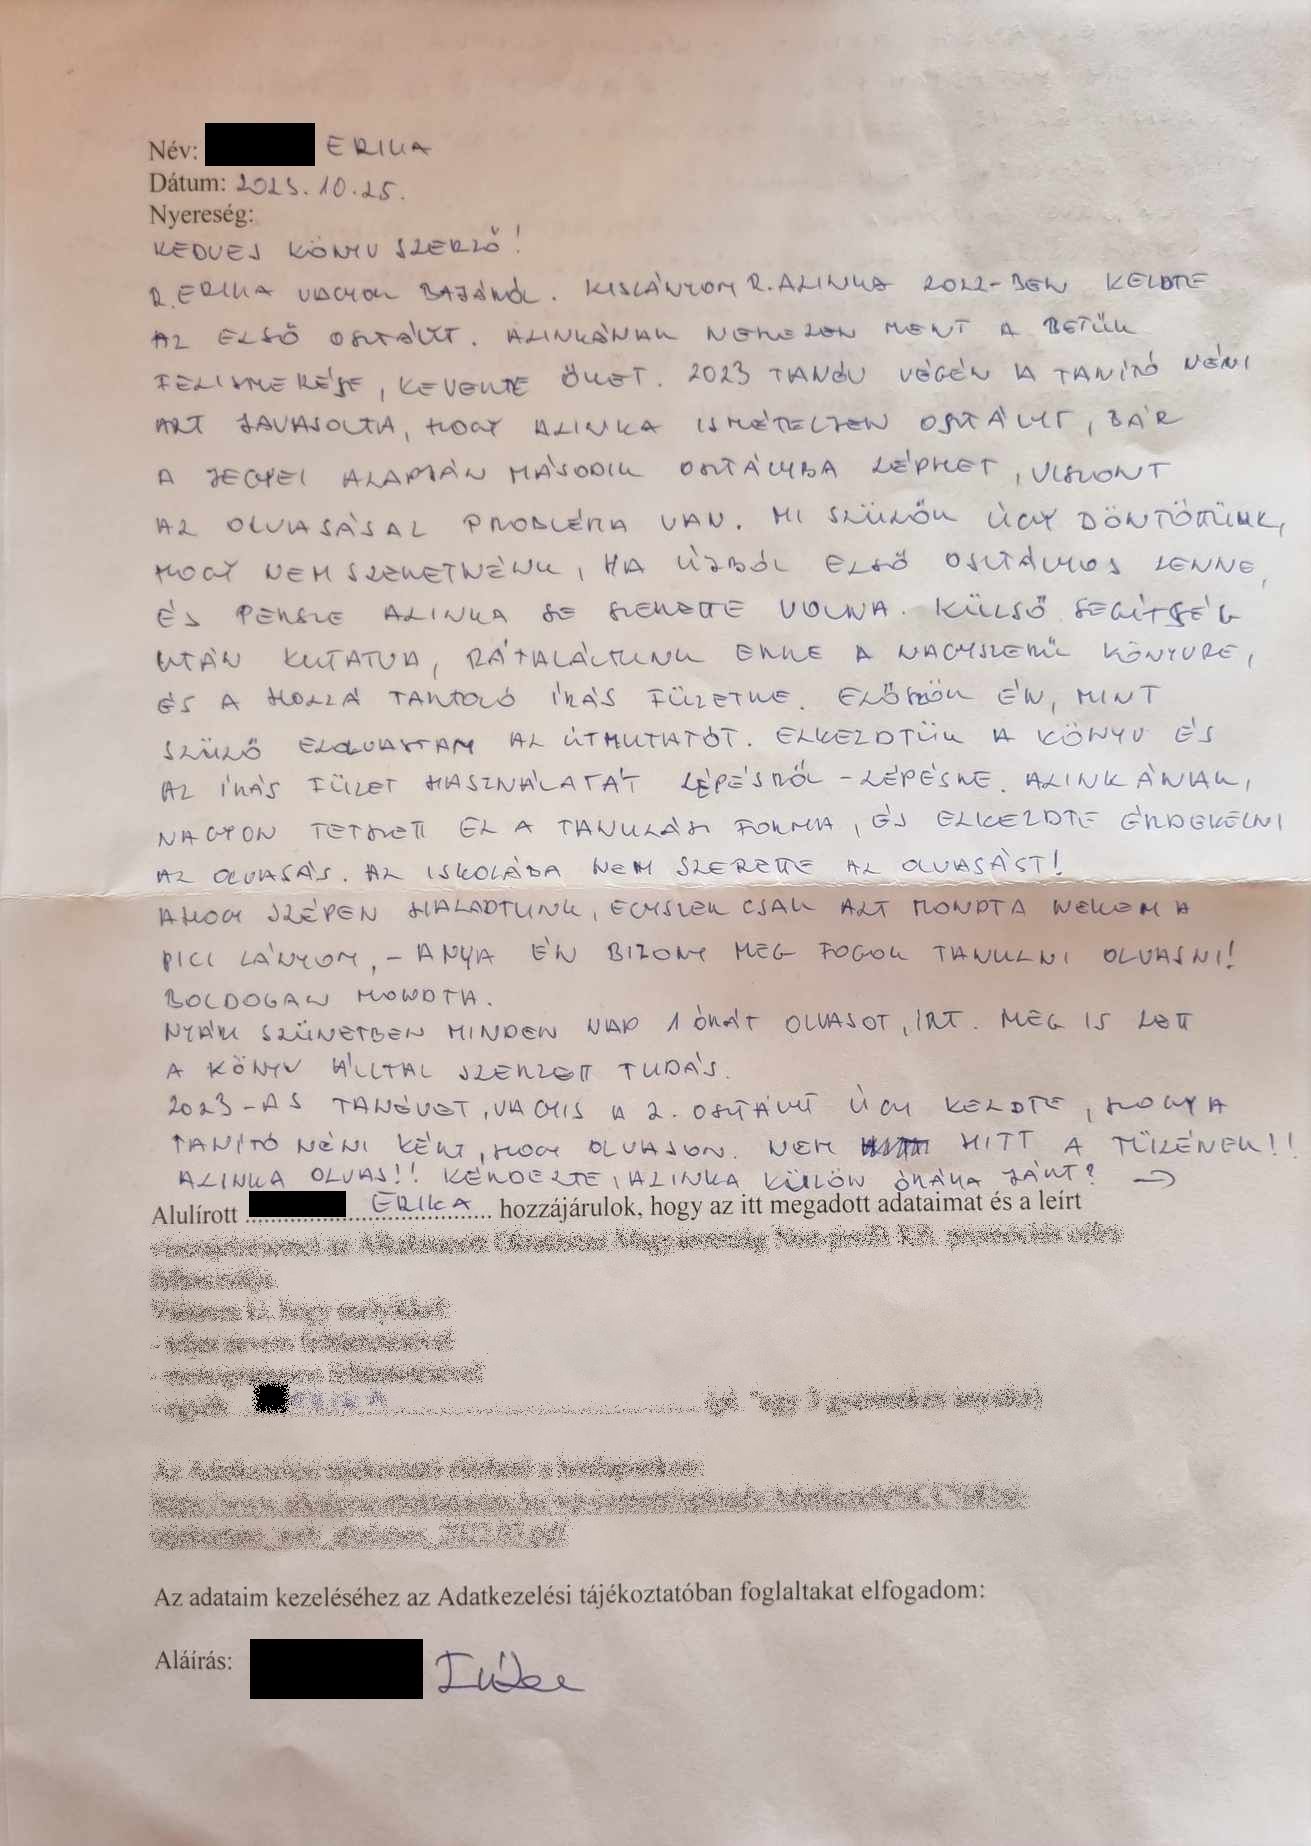 Név: ERIKA
Dátum: 2023.10.25.
Nyereség:
KEDVES KÖNYV SZERZŐ!
R. ERIKA VAGYOK BAJÁRÓL. KISLÁNYOM R. ALINKA 2022-BEN KEZDTE
AZ ELSŐ OSZTÁLYT. ALINKÁNAK NEHEZEN MENT A BETŰK
FELISMERÉSE, KEVERTE ŐKET. 2023 TANÉV VÉGÉN A TANÍTÓ NÉNI
AZT JAVASOLTA, HOGY ALINKA ISMÉTELJEN OSZTÁLYT, BÁR
A JEGYEI ALAPJÁN MÁSODIK OSZTÁLYBA LÉPHET, VISZONT
AZ OLVASÁSAL PROBLÉMA VAN. MI SZÜLŐK ÚGY DÖNTÖTTÜNK,
HOGY NEM SZERETNÉNK, HA ÚJBÓL ELSŐ OSZTÁLYOS LENNE,
ÉS PERSZE ALINKA SE SZERETTE VOLNA. KÜLSŐ SEGÍTSÉG
UTÁN KUTATVA, RÁTALÁLTUNK ERRE A NAGYSZERŰ KÖNYVRE,
ÉS A HOZZÁ TARTOZÓ ÍRÁS FÜZETRE. ELŐSZÖR ÉN, MINT
SZÜLŐ ELOLVASTAM AZ ÚTMUTATÓT. ELKEZDTÜK A KÖNYV ÉS
AZ ÍRÁS FÜZET HASZNÁLATÁT LÉPÉSRŐL - LÉPÉSRE. ALINKÁNAK,
NAGYON TETSZETT EZ A TANULÁSI FORMA, ÉS ELKEZDTE ÉRDEKELNI
AZ OLVASÁS. AZ ISKOLÁBA NEM SZERETTE AZ OLVASÁST!
AHOGY SZÉPEN HALADTUNK, EGYSZER CSAK AZT MONDTA NEKEM A
PICI LÁNYOM, - ANYA ÉN BIZONY MEG FOGOK TANULNI OLVASNI!
BOLDOGAN MONDTA.
NYÁRI SZÜNETBEN MINDEN NAP 1 ÓRÁT OLVASOT, ÍRT. MEG IS LETT
A KÖNYV ÁLLTAL SZERZETT TUDÁS.
2023-AS TANÉVET, VAGYIS A 2. OSZTÁLYT ÚGY KEZDTE, HOGY A
TANÍTÓ NÉNI KÉRT, HOGY OLVASON. NEM HITT A FÜLÉNEK!!
ALINKA OLVAS!! KÉRDEZTE, ALINKA KÜLÖN ÓRÁRA JÁRT? →
Alulírott ERIKA hozzájárulok, hogy az itt megadott adataimat és a leírt
Az adataim kezeléséhez az Adatkezelési tájékoztatóban foglaltakat elfogadom:
Aláírás: